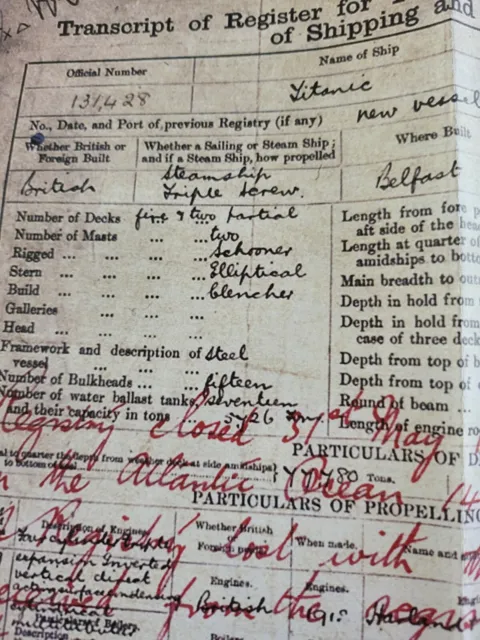 Transcript of Register for
of Shipping and
Official Number
Name of Ship
131,428
Titanic
No., Date, and Port of previous Registry (if any)
new vessel
Whether British or
Foreign Built
Whether a Sailing or Steam Ship;
and if a Steam Ship, how propelled
Where Built
British
Steamship
Triple Screw.
Belfast
Number of Decks five & two partial
Number of Masts ... ... two
Rigged ... ... ... ... Schooner
Stern ... ... ... ... Elliptical
Build ... ... ... ... clencher
Galleries ... ... ...
Head ... ... ... ...
Framework and description of steel
vessel ... ... ...
Number of Bulkheads ... ... fifteen
Number of water ballast tanks, seventeen
and their capacity in tons ... 5726
Length from fore p
aft side of the hea
Length at quarter of
amidships to botto
Main breadth to out
Depth in hold from
Depth in hold from
case of three deck
Depth from top of b
Depth from top of
Round of beam ...
Length of engine ro
closed 31st May
PARTICULARS OF D
to quarter the depth from weather deck at side amidships
to bottom of
77780 Tons.
the Atlantic Ocean
PARTICULARS OF PROPELLING
lost with
Description of Engines.
Whether British
or
Foreign
When made.
Name and
expansion Inverted
vertical direct
acting surface condensing
Engines.
Engines.
British
Harland
from the
Description
Boilers